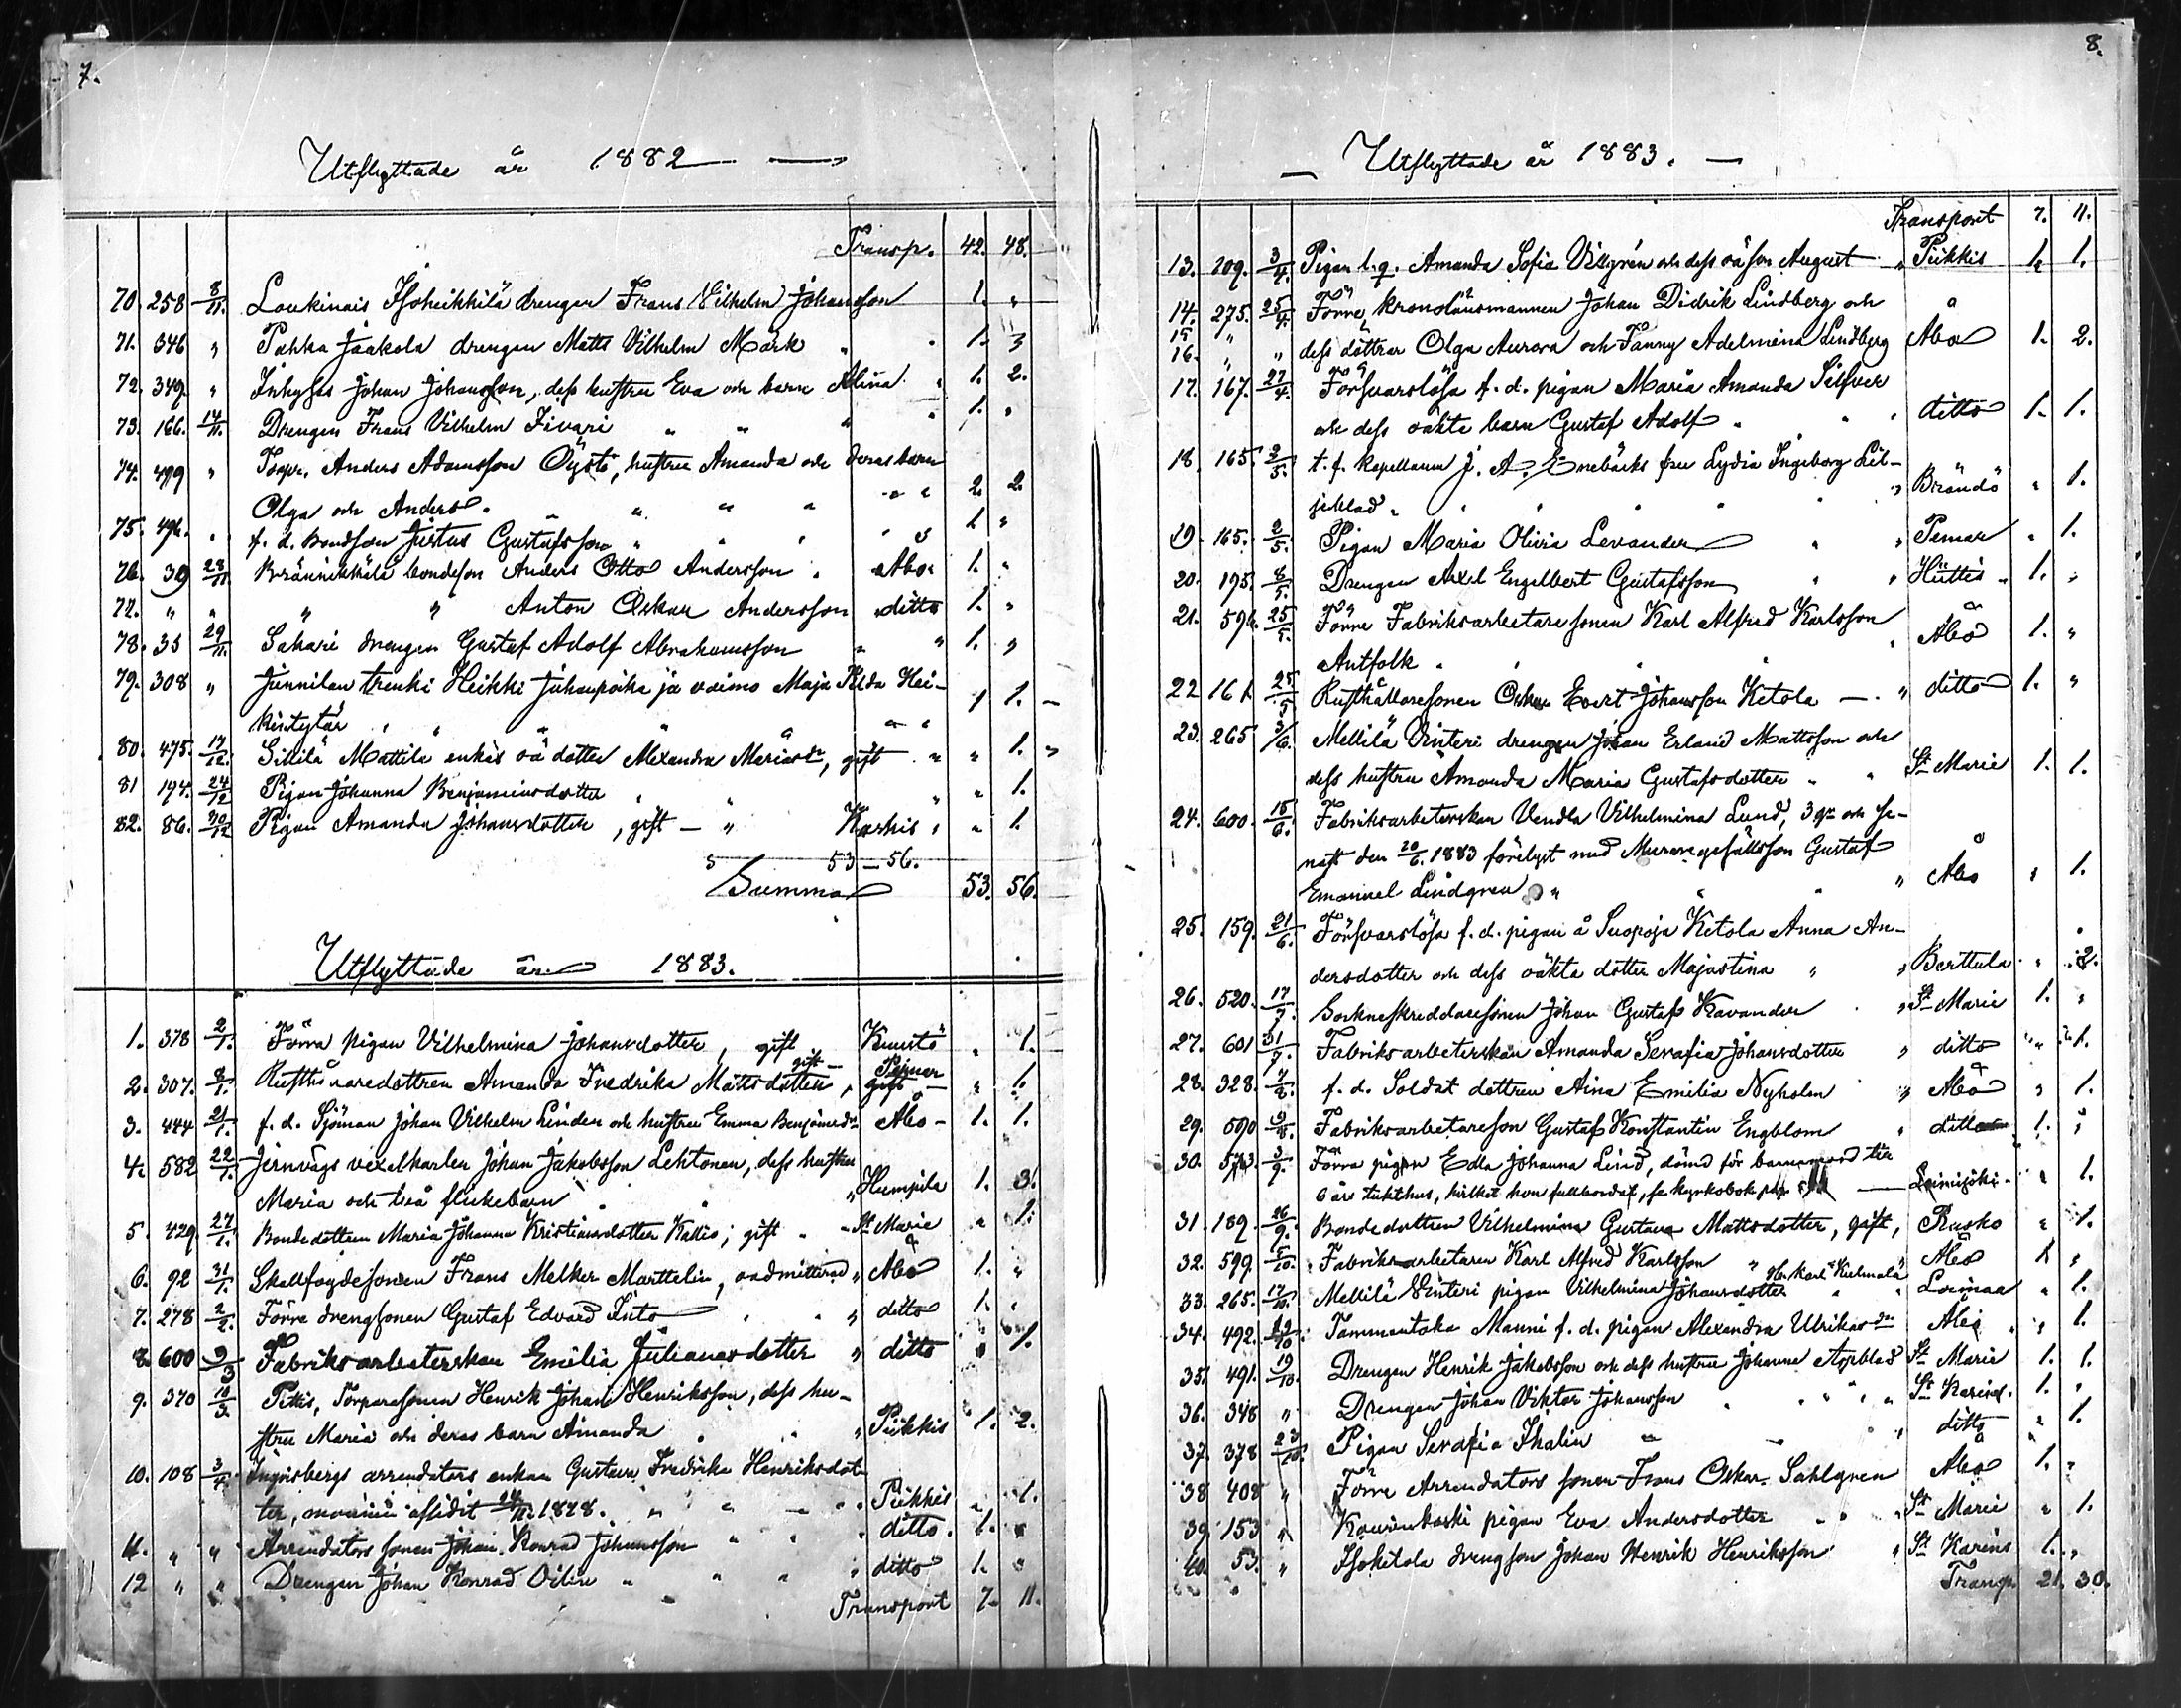 7.
Utflyttade år 1882
Transp. 42. 48.
70. 258 8/11. Loukinais Isoheikkilä drengen Frans Vilhelm Johansson 1. "
71. 346 " Pahka Jaakola drengen Matts Vilhelm Mark " " 1. "
72. 349 " Inhyses Johan Johansson, dess hustru Eva och barn Alina " 1. 2.
73. 166. 14/11. Drengen Frans Vilhelm Iivari " " " " 1. "
74. 499 " Torpr. Anders Adamsson Öysti, hustru Amanda och deras barn
Olga och Anders " " " " " " 2. 2.
75. 496. " f. d. Bondson Justus Gustafsson " " " " 1 "
76. 39 28/11 Brännikkälä bondeson Anders Otto Andersson " Åbo 1. "
77. " " " " Anton Oskar Andersson ditto 1. "
78. 35 29/11. Sakari drengen Gustaf Adolf Abrahamsson " " 1. "
79. 308 " Junnilan trenki Heikki Juhanpoika ja vaimo Maja Hei-
kintytär " " " " " 1 1. -
80. 475. 17/12. Sillilä Mattila enkas oä dotter Alexandra Mariasdr, gift " " 1.
81 194. 24/12 Pigan Johanna Benjaminsdotter " " " " 1.
82. 86. 30/12 Pigan Amanda Johansdotter, gift - " Karkis " " 1.
53 - 56.
Summa 53. 56.
Utflyttade år 1883.
1. 378 2/1. Förra pigan Vilhelmina Johansdotter, gift Kuustö " 1.
2. 307. 8/1. Rusthållaredottren Amanda Fredrika Mattsdotter, gift - Pemar " 1.
3. 444 21/1. f. d. Sjöman Johan Vilhelm Linden och hustru Emma Benjamsdr Åbo - 1. 1.
4. 582 22/1. Jernvägs vexelkarlen Johan Jakobsson Lehtonen, dess hustru
Maria och två flickebarn " " " Humpila 1. 3.
5. 429 27/1. Bondedottren Maria Johanna Kristiansdotter Kallis; gift " St Marie " 1.
6. 92 31/1. Skallfogdesonen Frans Melker Marttelin, oadmitterad " Åbo 1. "
7. 278 2/2. Förre drengsonen Gustaf Edvard Into " " " ditto 1. "
8. 600 9/3 Fabriksarbeterskan Emilia Julianasdotter " ditto " 1.
9. 370 10/3. Pittis, Torparesonen Henrik Johan Henriksson, dess hu-
stru Maria och deras barn Amanda " " " Piikkis 1. 2.
10. 108 3/4. Ingvisbergs arrendators enkan Gustava Fredrika Henriksdot-
ter, mannen aflidit 24/11 1878. " " " Piikkis " 1.
11. " " Arrendators sonen Johan Konrad Johansson " " ditto. 1. "
12 " " Drengen Johan Konrad Oilin " " " " ditto 1. "
Transport 7. 11.
8.
Utflyttade år 1883.
Transport 7. 11.
13. 209. 3/4. Pigan l. q. Amanda Sofia Villgrén och dess oä son August " Piikkis 1. 1.
14. 275. 25/4. Förre kronolänsmannen Johan Didrik Lindberg och
15 " "
16. " " dess döttrar Olga Aurora och Fanny Adelmina Lindberg Åbo 1. 2.
17. 167. 27/4. Försvarslösa f. d. pigan Maria Amanda Silfver
och dess oäkta barn Gustaf Adolf " " " ditto 1. 1.
18 165. 2/5. t. f. kapellanen J. A. Enebäcks fru Lydia Ingeborg Lil-
jeblad " " " " " " Brändö " 1.
19 165. 2/5. Pigan Maria Olivia Levander " " Pemar " 1.
20. 195. 8/5. Drengen Axel Engelbert Gustafsson " " Hiittis " 1. "
21. 594. 25/5. Förre Fabriksarbetare sonen Karl Alfred Karlsson
Antfolk " " " " " Åbo 1. "
22 161 25/5 Rusthållaresonen Oskar Evert Johansson Ketola - " ditto 1. "
23. 265 3/6. Mellilä Vinteri drengen Johan Erland Mattsson och
dess hustru Amanda Maria Gustafsdotter " " St Marie 1. 1.
24. 600. 15/6. Fabriksarbeterskan Vendla Vilhelmina Lund, 3 gr och se-
nast den 20/6. 1883 förelyst med Muraregesällsson Gustaf
Emanuel Lindgren " " " " Åbo " 1.
25. 159. 21/6. Försvarslösa f. d. pigan å Suopoja Ketola Anna An-
dersdotter och dess oäkta dotter Majastina " " Berttula " 2.
26. 520. 17/7. Sockneskreddaresonen Johan Gustaf Kavander " St Marie 1. "
27. 601 31/7. Fabriksarbeterskan Amanda Serafia Johansdotter " ditto " 1.
28. 328. 7/8. f. d. Soldat dottren Aina Emilia Nyholm " Åbo " 1.
29. 590 9/8. Fabriksarbetareson Gustaf Konstantin Engblom " ditto 1. "
30. 573. 3/9. Förra pigan Edla Johanna Lind, dömd för barnamord till
6 års tukthus, hvilket hon fullbordat, se kyrkobok pag - Loimijoki " 1.
31. 189. 26/9. Bondedottren Vilhelmina Gustava Mattsdotter, gift, Rusko " 1.
32. 599. 15/10. Fabriksarbetaren Karl Alfred Karlsson " Åbo 1. "
33. 265. 17/10. Mellilä Vinteri pigan Vilhelmina Johansdotter " " Loimaa " 1.
34. 492. 19/10. Tammentaka Manni f. d. pigan Alexandra Ulrikasdr Åbo " 1.
35. 491. 19/10. Drengen Henrik Jakobsson och dess hustru Johanna Asplad St Marie 1. 1.
36. 348 " Drengen Johan Viktor Johansson " " " " St Karins. 1. "
37. 378 23/10. Pigan Serafia Thalin " " " ditto " 1.
38 408 " Förre Arrendators sonen Frans Oskar Sahlgren Åbo 1. "
39 153 " Kaurinkoski pigan Eva Andersdotter " " " St Marie " 1.
40. 53. " Isoketola drengson Johan Henrik Henriksson " St Karins 1. "
Transp. 21. 30.